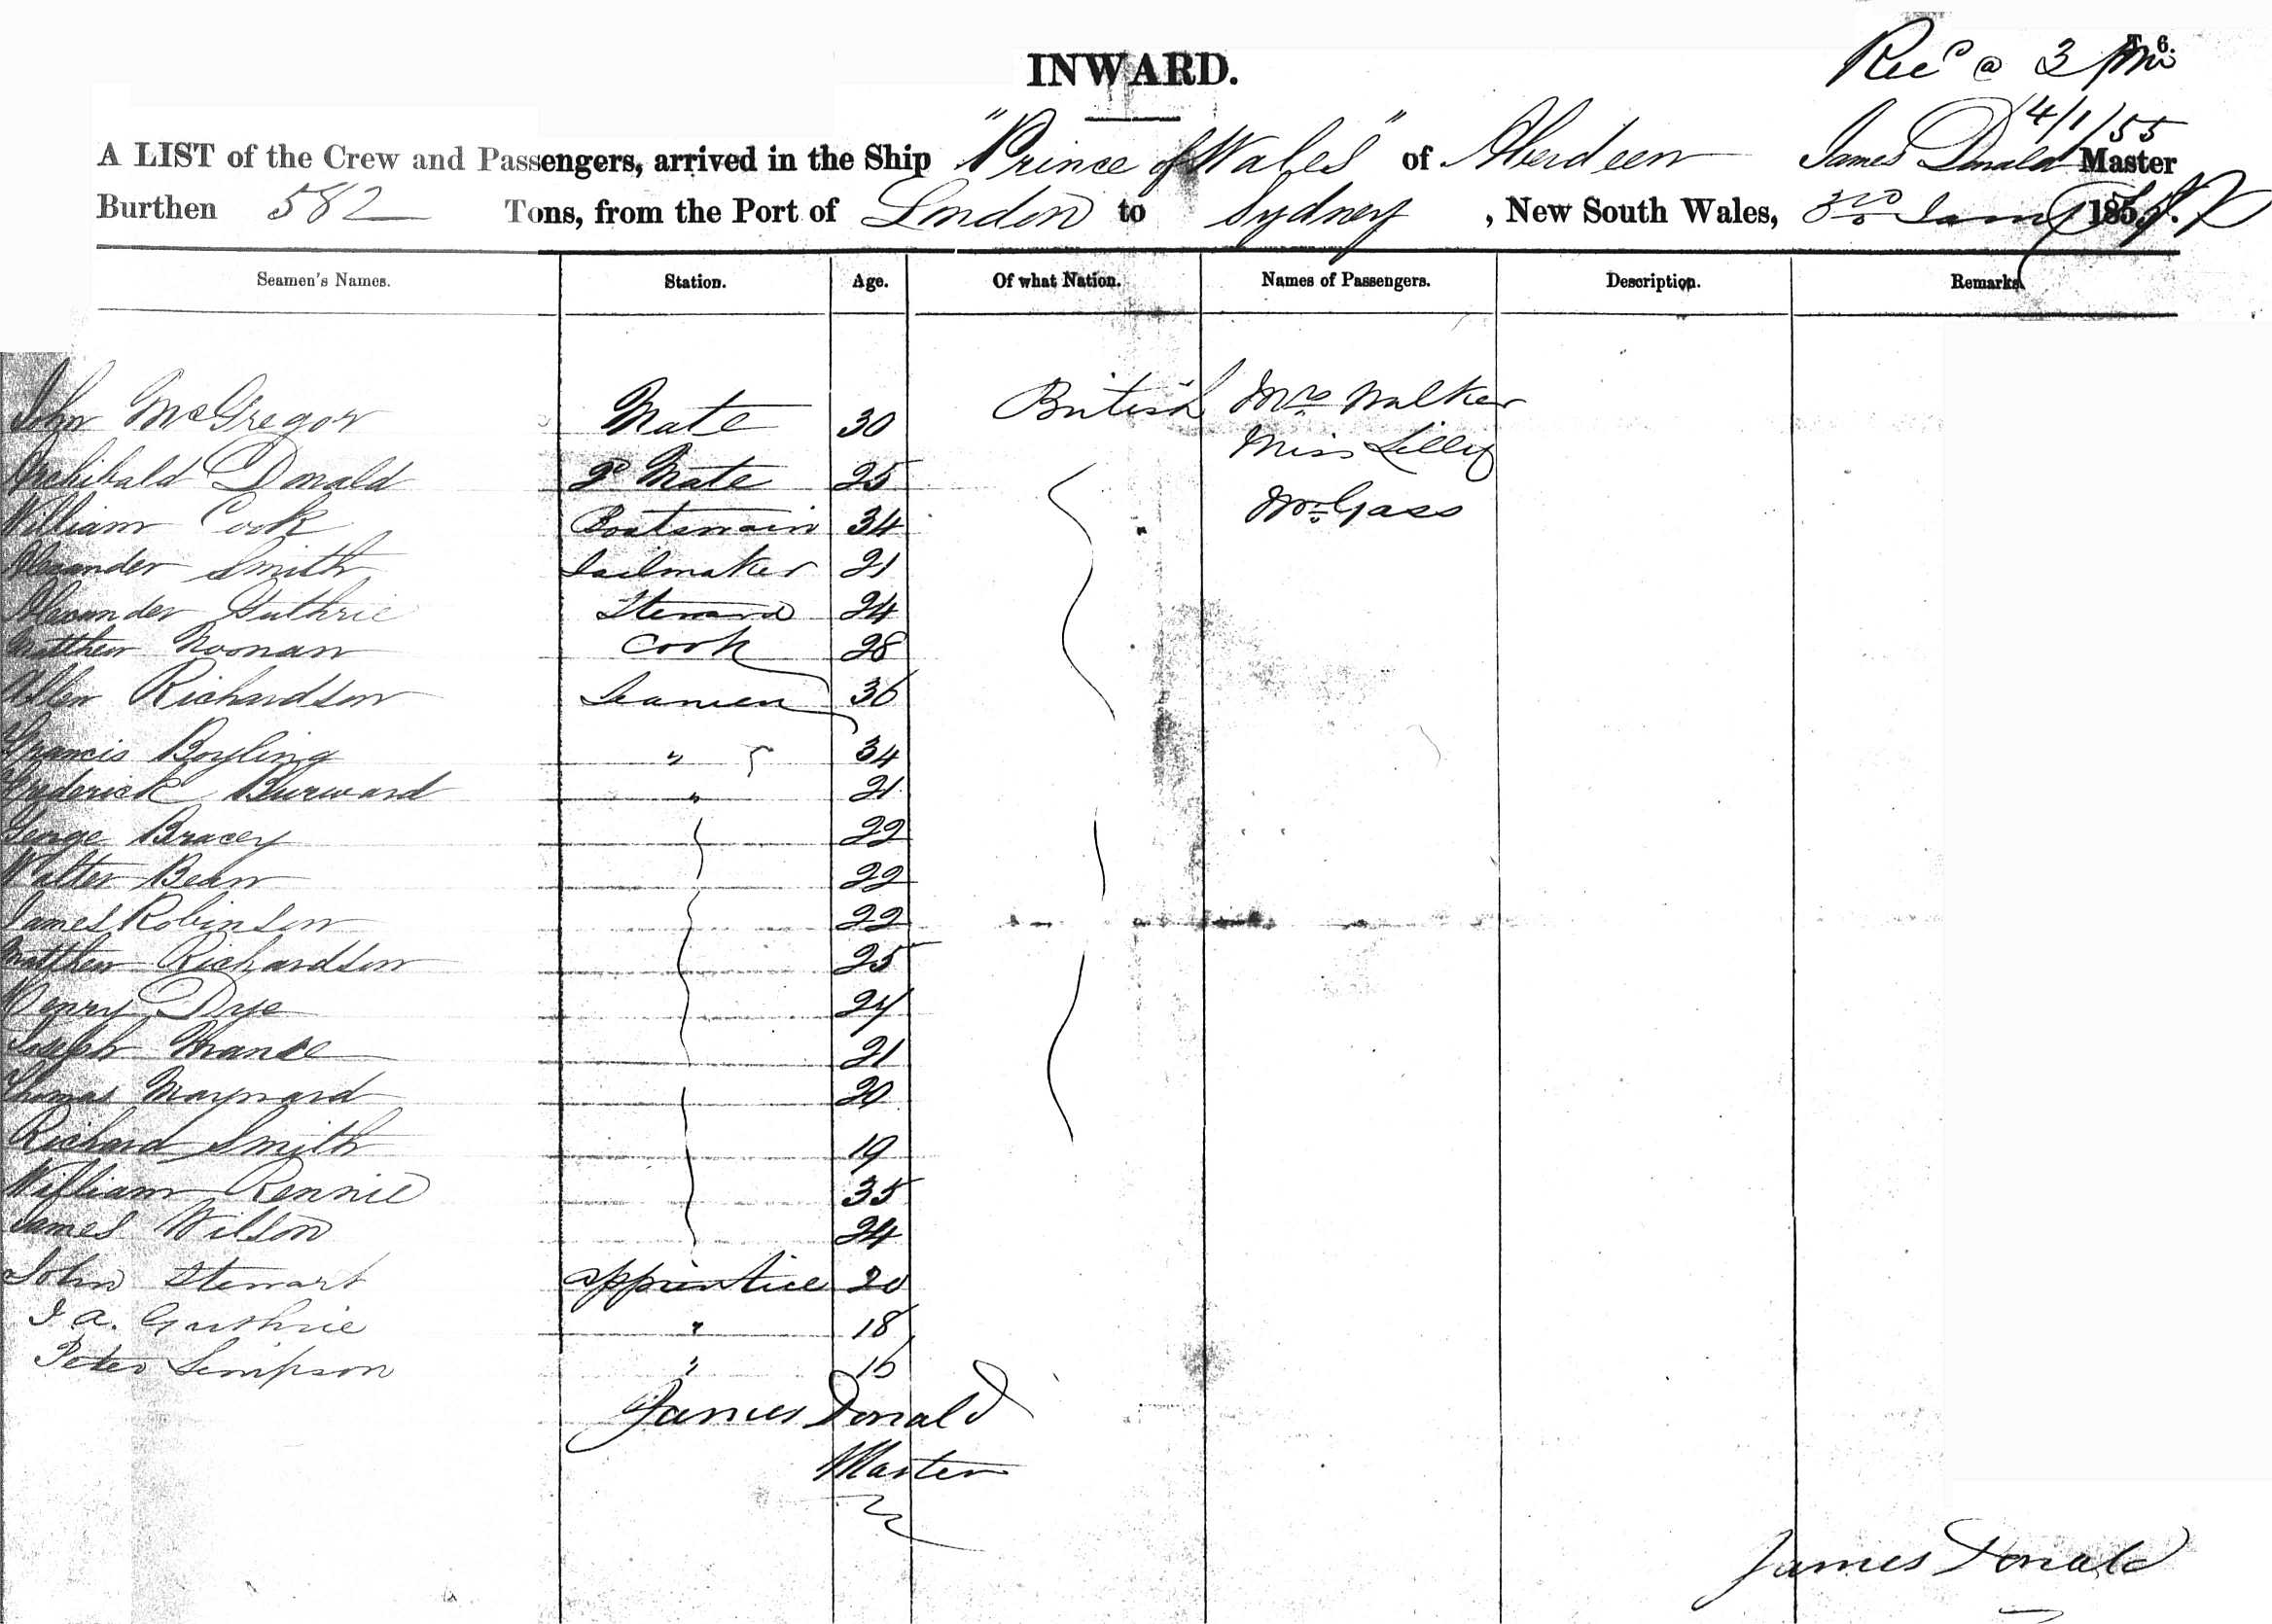 INWARD.
T. 6.
Recd @ 3 pm
4/1/55
A LIST of the Crew and Passengers, arrived in the Ship "Prince of Wales" of Aberdeen James Donald Master
Burthen 582 Tons, from the Port of London to Sydney, New South Wales, 3rd Jany 185
Seamen's Names. Station. Age. Of what Nation. Names of Passengers. Description. Remarks
John McGregor Mate 30 British Mrs. Walker
Miss Lilly
Archibald Donald 2d Mate 25
William Cook Boatswain 34 Mr. Gass
Alexander Smith Sailmaker 21
Alexander Guthrie Steward 24
Matthew Noonan Cook 28
Allen Richardson Seamen 36
Francis Boyling " 34
Frederick Burward " 21
George Bracey 22
Walter Bean 22
James Robinson 22
Matthew Richardson 25
Henry Dye 24
Joseph 21
Thomas Maynard 20
Richard Smith 19
William Rennie 35
James Wilson 24
John Stewart apprentice 20
J. A. Guthrie " 18
Peter Simpson " 16
James Donald
Master
James Donald